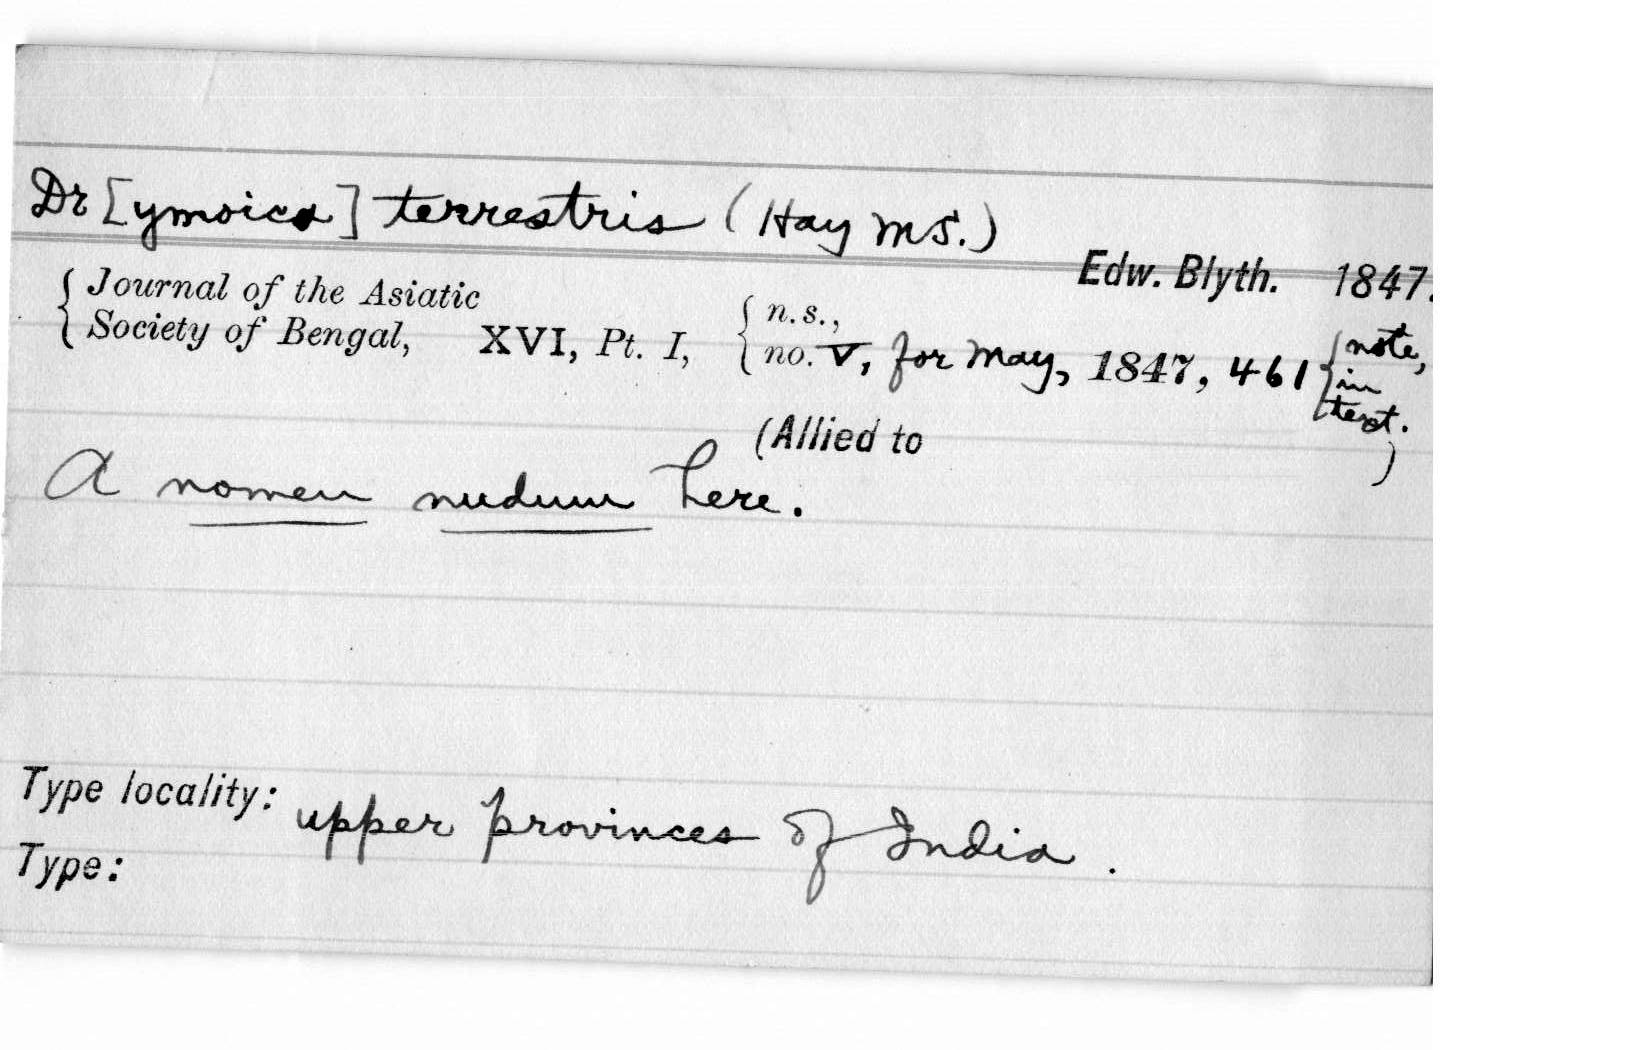 Dr [ymoica] terrestris (Hay MS.)
Edw. Blyth. 1847.
{ Journal of the Asiatic
{ Society of Bengal, XVI, Pt. I, { n.s.,
{ no. V, for May, 1847, 461 { note,
in
text.
(Allied to )
A nomen nudum here.
Type locality: upper provinces of India.
Type: